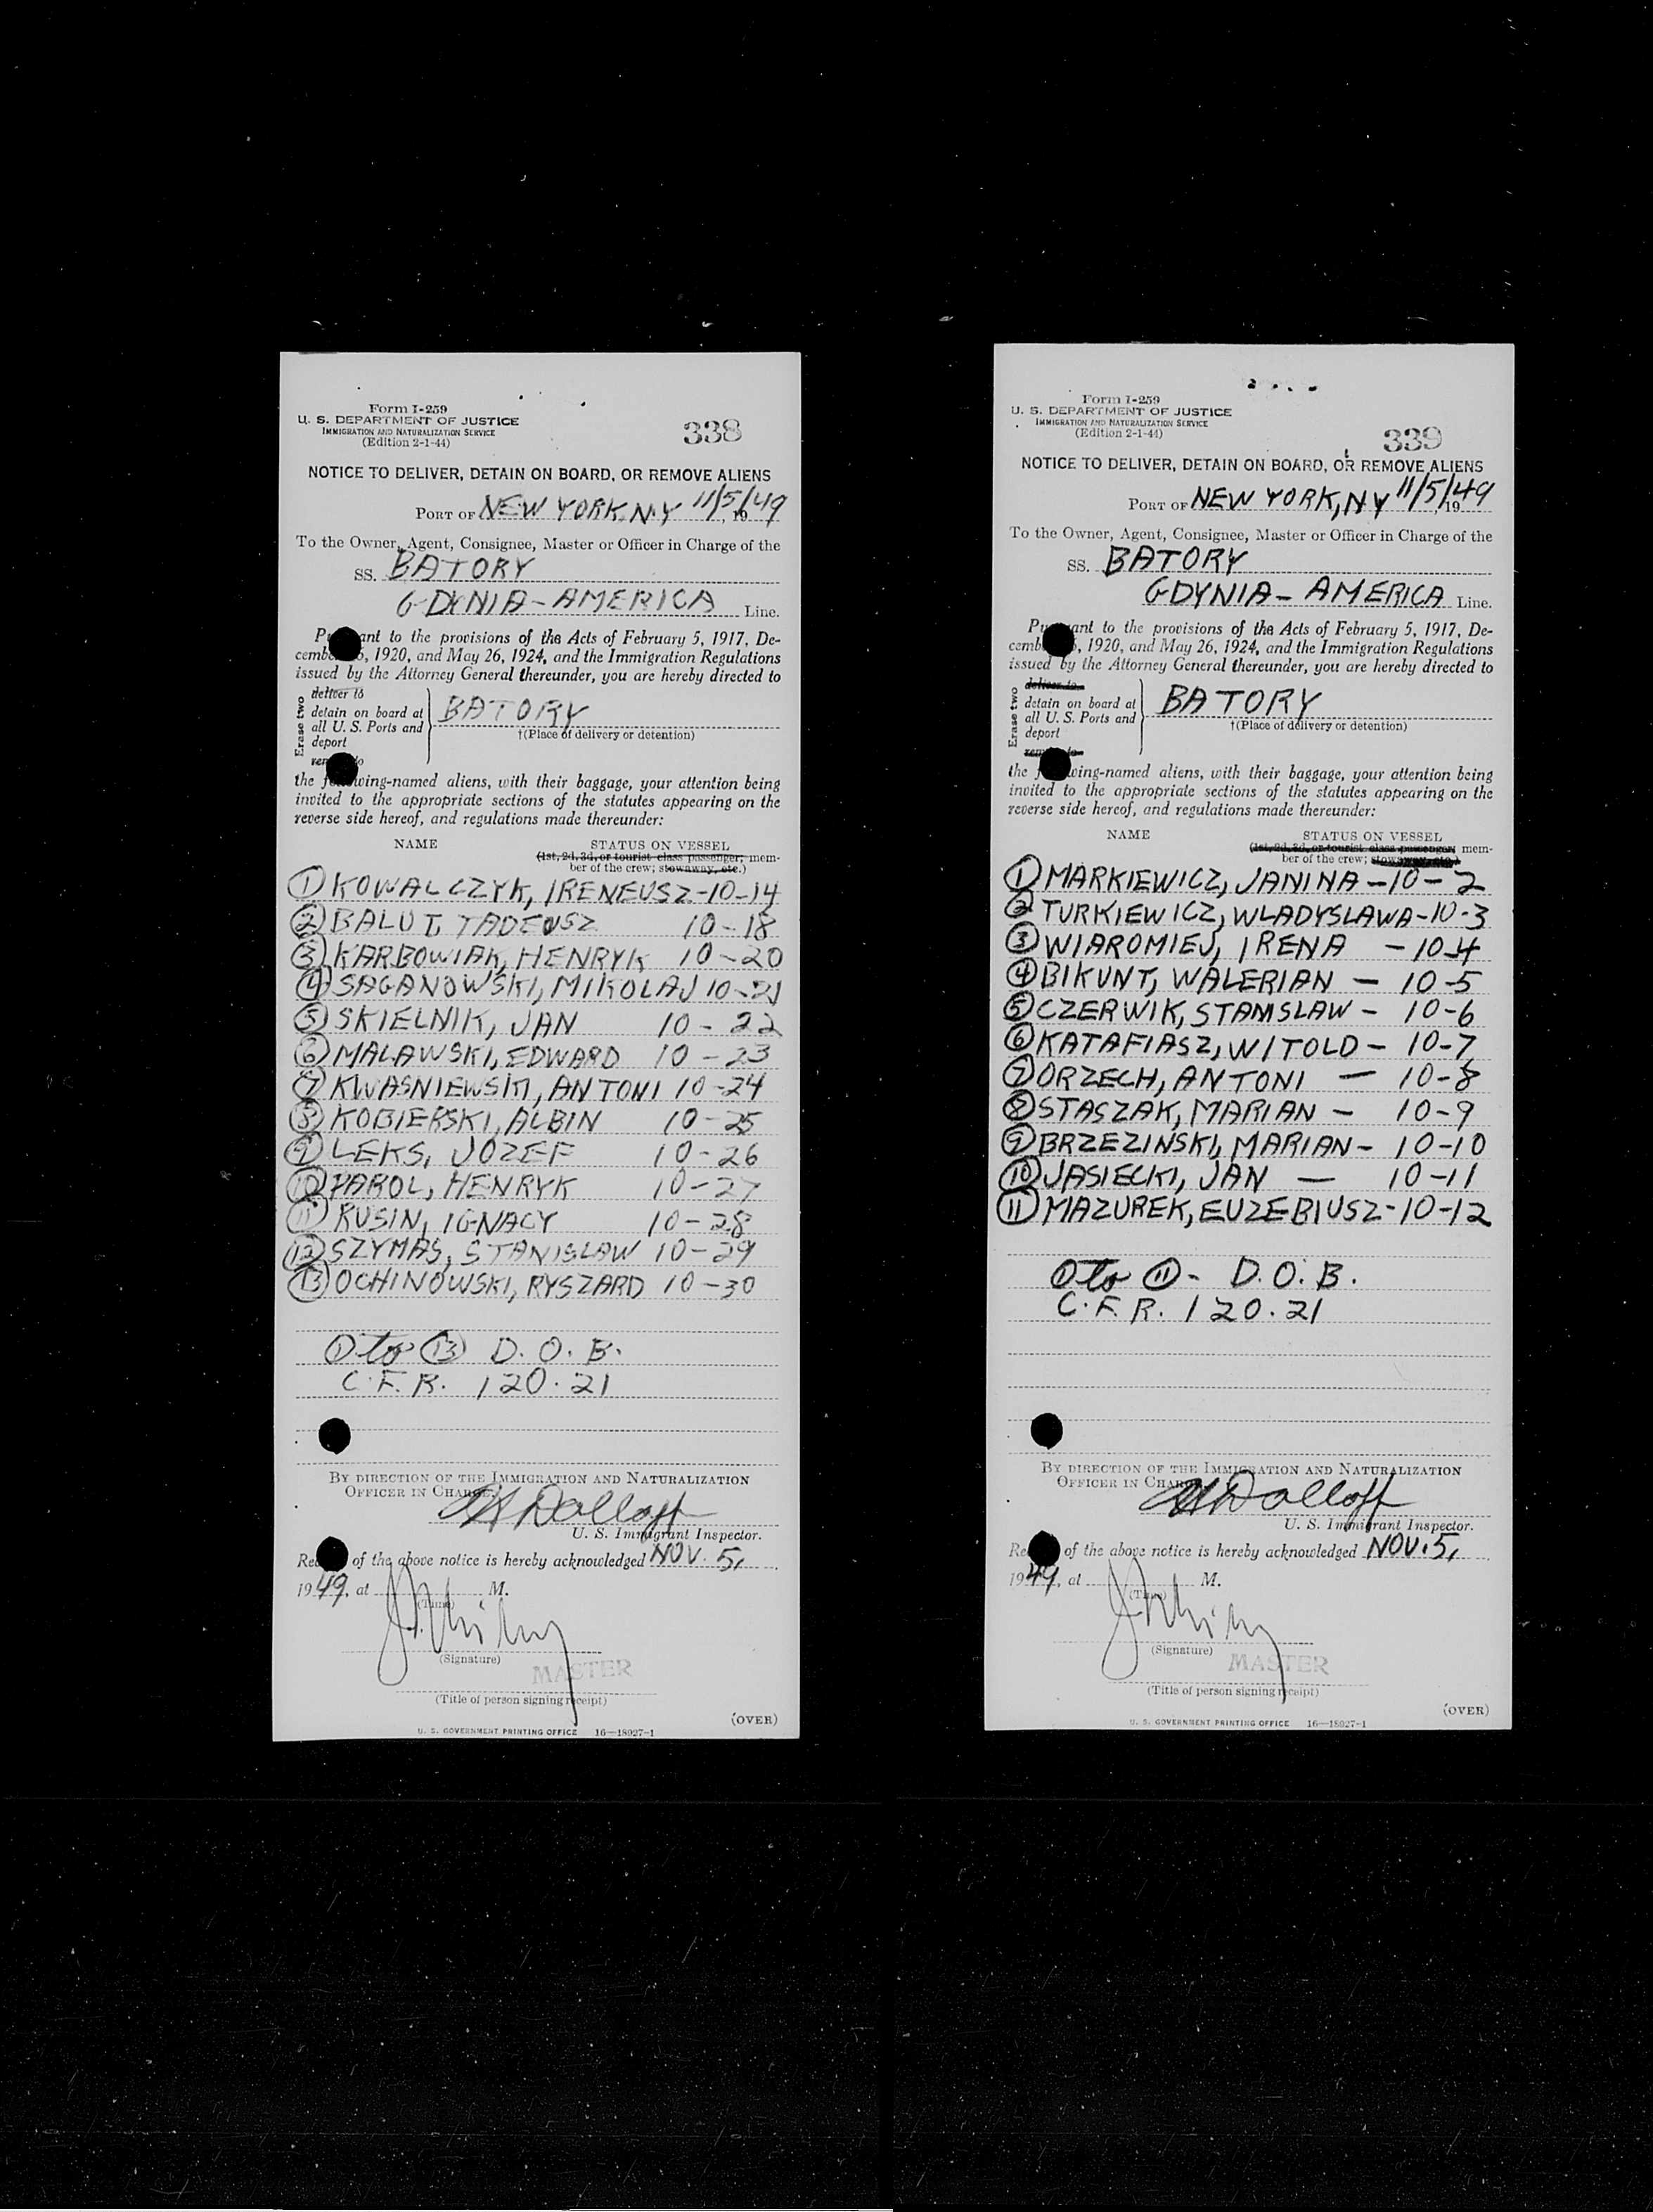 Form I-259
U. S. DEPARTMENT OF JUSTICE
IMMIGRATION AND NATURALIZATION SERVICE
(Edition 2-1-44)
338
NOTICE TO DELIVER, DETAIN ON BOARD, OR REMOVE ALIENS
PORT OF NEW YORK, N.Y 11/5/49, 19
To the Owner, Agent, Consignee, Master or Officer in Charge of the
SS. BATORY
GDYNIA-AMERICA Line.
ant to the provisions of the Acts of February 5, 1917, De-
cemb , 1920, and May 26, 1924, and the Immigration Regulations
issued by the Attorney General thereunder, you are hereby directed to
Erase two
deliver to
detain on board at
all U. S. Ports and
deport
BATORY
†(Place of delivery or detention)
the wing-named aliens, with their baggage, your attention being
invited to the appropriate sections of the statutes appearing on the
reverse side hereof, and regulations made thereunder:
NAME STATUS ON VESSEL
(1st, 2d, 3d, or tourist class passenger; mem-
ber of the crew; stowaway, etc.)
① KOWALCZYK, IRENEUSZ-10-14
② BALUT, TADEUSZ 10-18
③ KARBOWIAK, HENRYK 10-20
④ SAGANOWSKI, MIKOLAJ 10-21
⑤ SKIELNIK, JAN 10-22
⑥ MALAWSKI, EDWARD 10-23
⑦ KWASNIEWSKI, ANTONI 10-24
⑧ KOBIERSKI, ALBIN 10-25
⑨ LEKS, JOZEF 10-26
⑩ PAROL, HENRYK 10-27
⑪ KUSIN, IGNACY 10-28
⑫ SZYMAS, STANISLAW 10-29
⑬ OCHINOWSKI, RYSZARD 10-30
① to ⑬ D. O. B.
C.F.R. 120.21
BY DIRECTION OF THE IMMIGRATION AND NATURALIZATION
OFFICER IN CHARGE.
Dolloff
U. S. Immigrant Inspector.
of the above notice is hereby acknowledged NOV. 5,
1949, at M.
(Time)
(Signature)
MASTER
(Title of person signing receipt)
(OVER)
U. S. GOVERNMENT PRINTING OFFICE 16—18927-1
Form I-259
U. S. DEPARTMENT OF JUSTICE
IMMIGRATION AND NATURALIZATION SERVICE
(Edition 2-1-44)
339
NOTICE TO DELIVER, DETAIN ON BOARD, OR REMOVE ALIENS
PORT OF NEW YORK, NY 11/5/49, 19
To the Owner, Agent, Consignee, Master or Officer in Charge of the
SS. BATORY
GDYNIA-AMERICA Line.
ant to the provisions of the Acts of February 5, 1917, De-
cemb , 1920, and May 26, 1924, and the Immigration Regulations
issued by the Attorney General thereunder, you are hereby directed to
Erase two
deliver to
detain on board at
all U. S. Ports and
deport
BATORY
†(Place of delivery or detention)
the wing-named aliens, with their baggage, your attention being
invited to the appropriate sections of the statutes appearing on the
reverse side hereof, and regulations made thereunder:
NAME STATUS ON VESSEL
(1st, 2d, 3d, or tourist class passenger; mem-
ber of the crew; stowaway, etc.)
① MARKIEWICZ, JANINA-10-2
② TURKIEWICZ, WLADYSLAWA-10-3
③ WIAROMIEJ, IRENA -10-4
④ BIKUNT, WALERIAN - 10-5
⑤ CZERWIK, STANISLAW - 10-6
⑥ KATAFIASZ, WITOLD - 10-7
⑦ ORZECH, ANTONI - 10-8
⑧ STASZAK, MARIAN - 10-9
⑨ BRZEZINSKI, MARIAN - 10-10
⑩ JASIECKI, JAN - 10-11
⑪ MAZUREK, EUZEBIUSZ-10-12
① to ⑪ - D.O.B.
C.F.R. 120.21
BY DIRECTION OF THE IMMIGRATION AND NATURALIZATION
OFFICER IN CHARGE.
Dolloff
U. S. Immigrant Inspector.
of the above notice is hereby acknowledged NOV. 5,
1949, at M.
(Time)
(Signature)
MASTER
(Title of person signing receipt)
(OVER)
U. S. GOVERNMENT PRINTING OFFICE 16—18927-1